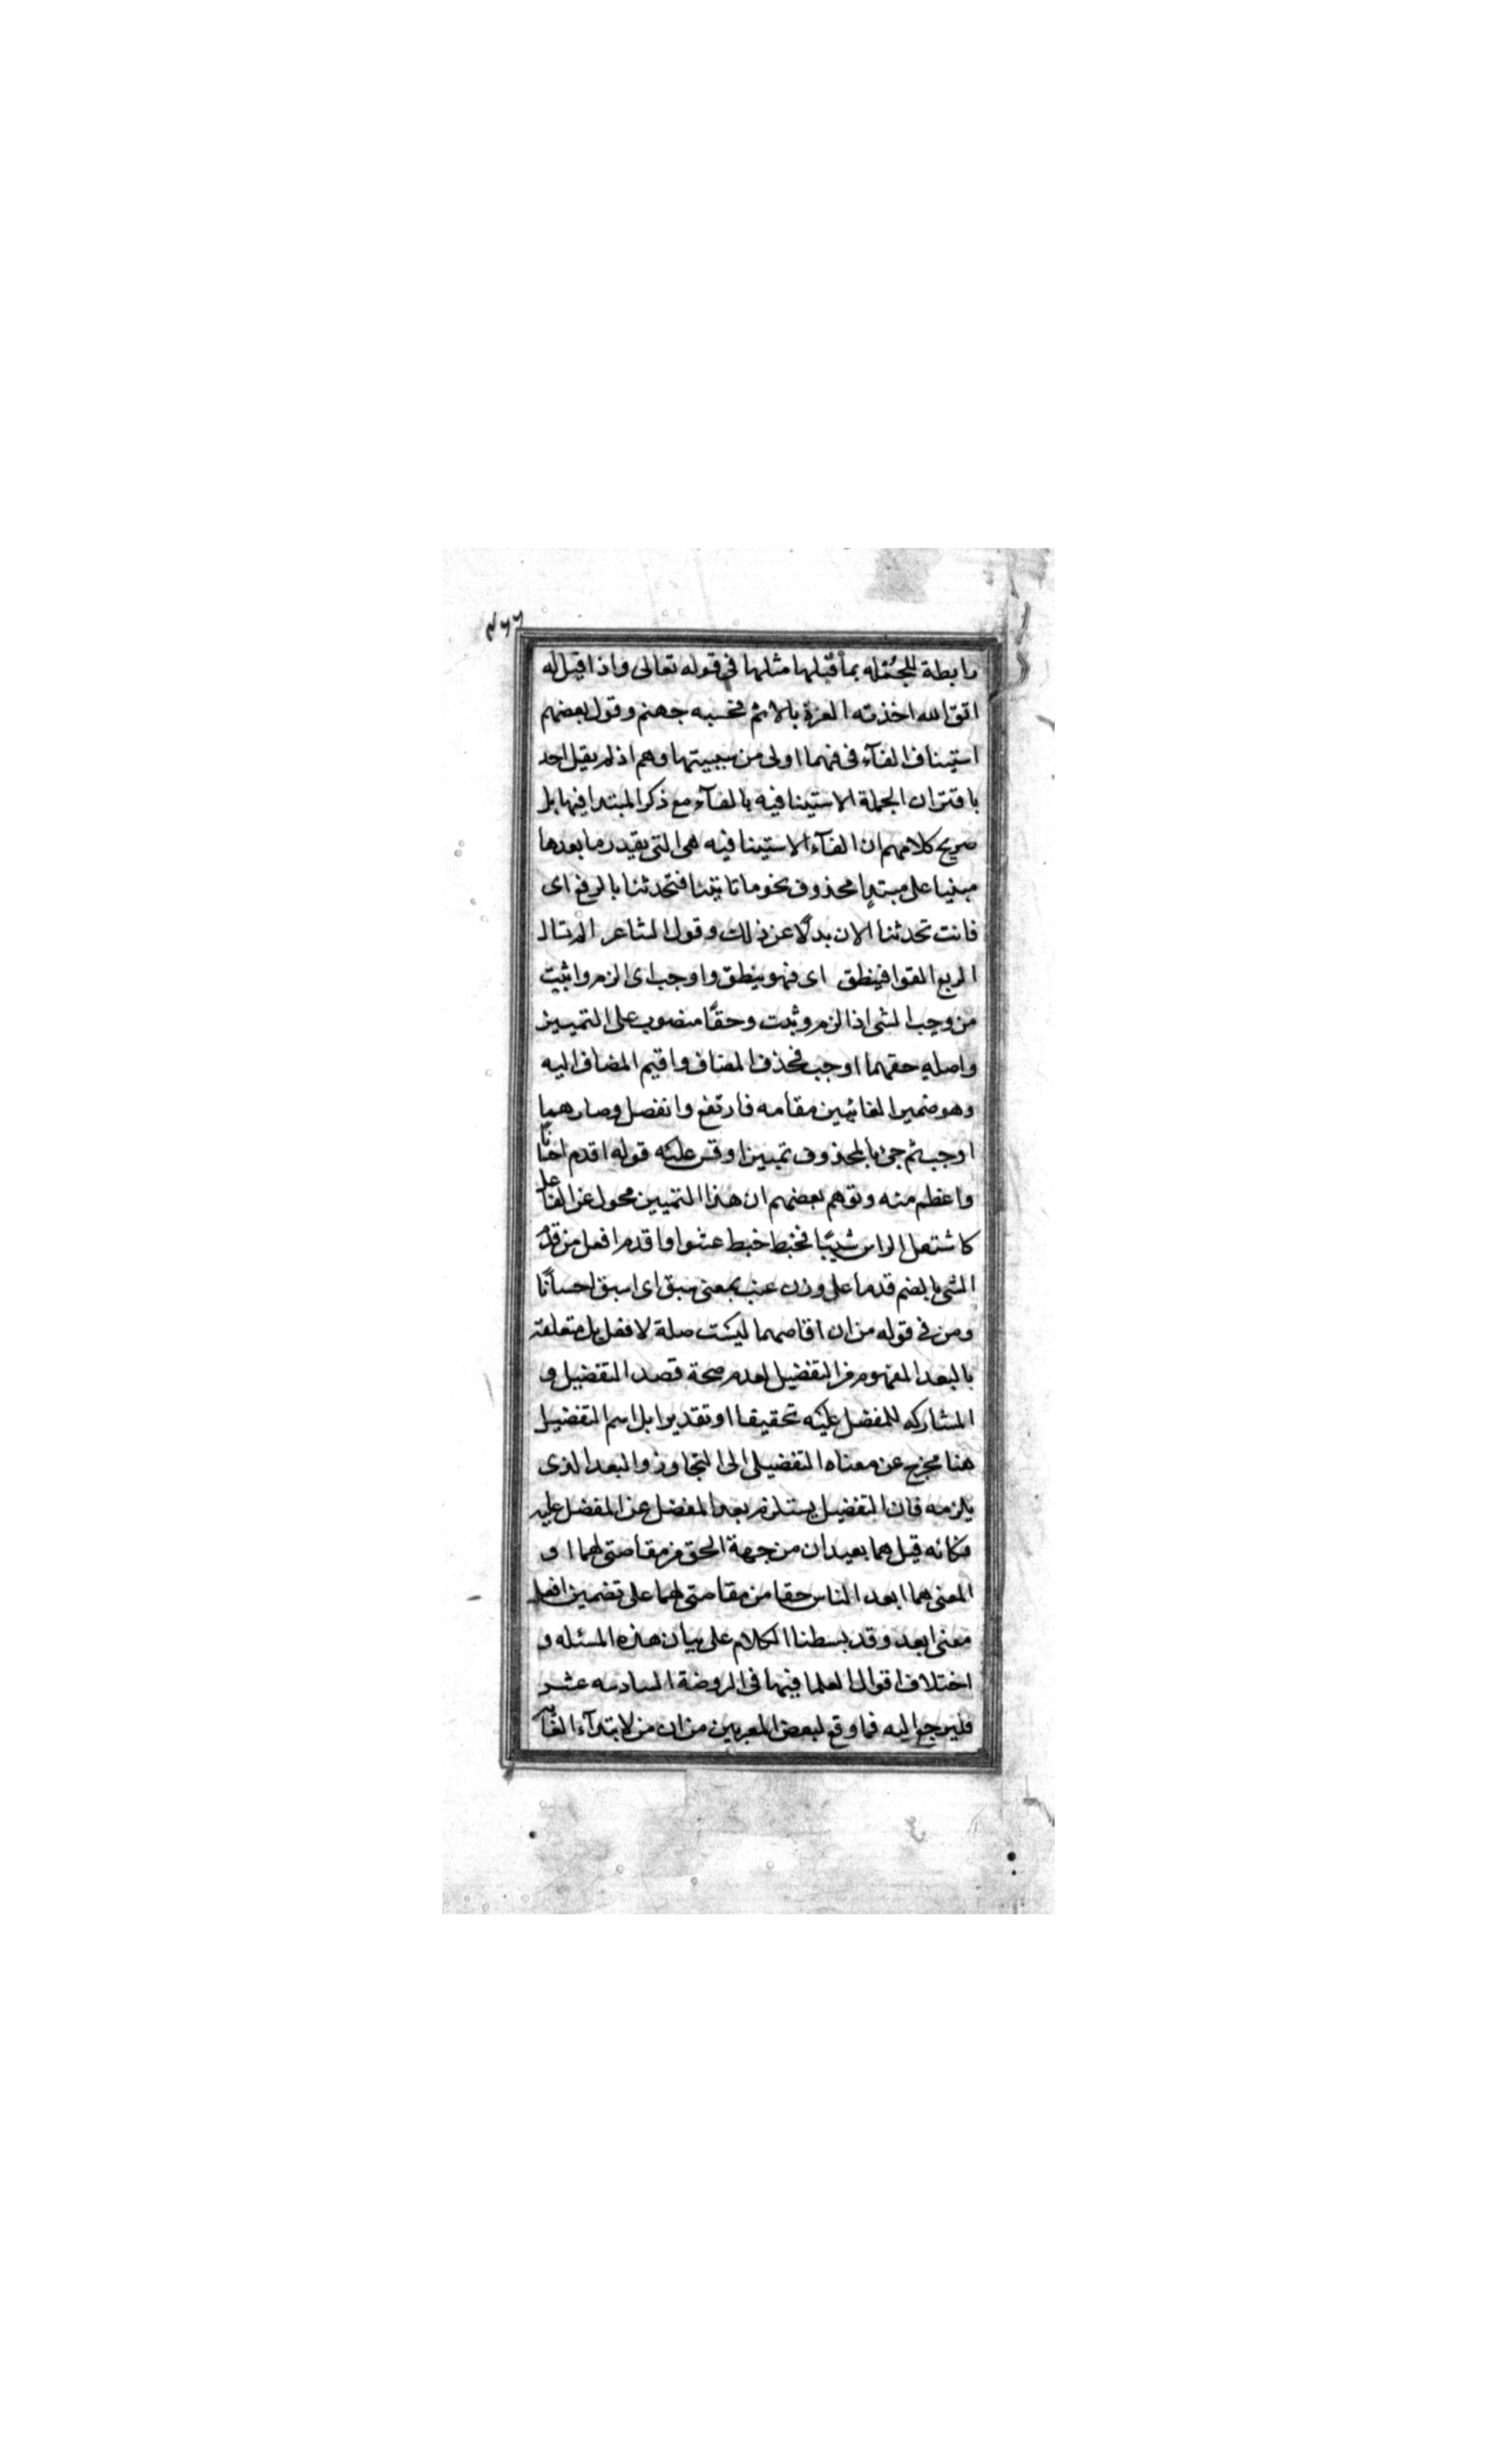 ٤٦٦
رابطة للجمله بما قبلها مثلها فى قوله تعالى واذا قيل له
اتق الله اخذته العزة بالاثم فحسبه جهنم وقول بعضهم
استيناف الفآء فى فهما اولى من سببيتها وهم اذ لم يقل احد
باقتران الجملة الاستينافيه بالفآء مع ذكر المبتدا فيها بل
صريح كلامهم ان الفآء الاستينافيه هى التى يقدر ما بعدها
مبنيا على مبتدإ محذوف نحو ما تاتينا فتحدثنا بالرفع اى
فانت تحدثنا الان بدلًا عن ذلك وقول الشاعر الم تسال
الربع القوا فينطق اى فهو ينطق واوجب اى الزم واثبت
من وجب الشى اذا لزم وثبت وحقًا منصوب على التمييز
واصله حقهما اوجب فحذف المضاف واقيم المضاف اليه
وهو ضمير الغائبين مقامه فارتفع وانفصل وصار هما
اوجب ثم جئ بالمحذوف تمييزا وقس عليه قوله اقدم احسانًا
واعظم منه وتوهم بعضهم ان هذا التمييز محول عن الفاعل
كاشتعل الراس شيبًا فخبط خبط عشوا واقدم افعل من قدم
الشئ بالضم قدما على وزن عنب بمعنى سبق اى اسبق احسانًا
ومن فى قوله من ان اقاصهما ليست صلة لافعل بل متعلقة
بالبعد المفهوم من التفضيل لعدم صحة قصد التفضيل و
المشاركه للمفضل عليه تحقيقا او تقديرا بل اسم التفضيل
هنا مخرج عن معناه التفضيلى الى التجاوز والبعد الذى
يلزمه فان التفضيل يستلزم بعد المفضل عن المفضل عليه
فكانه قيل هما بعيدان من جهة الحق من مقاصتى لهما او
المعنى هما ابعد الناس حقا من مقاصتى لهما على تضمين افعل
معنى ابعد وقد بسطنا الكلام على بيان هذه المسئله و
اختلاف اقوال العلما فيها فى الروضة السادسه عشر
فليرجع اليه فما وقع لبعض المعربين من ان من لابتدآء الغايه